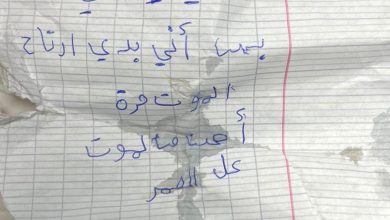 بس أني بدي ارتاح
الموت مرة
أحسن من لموت
كل العمر